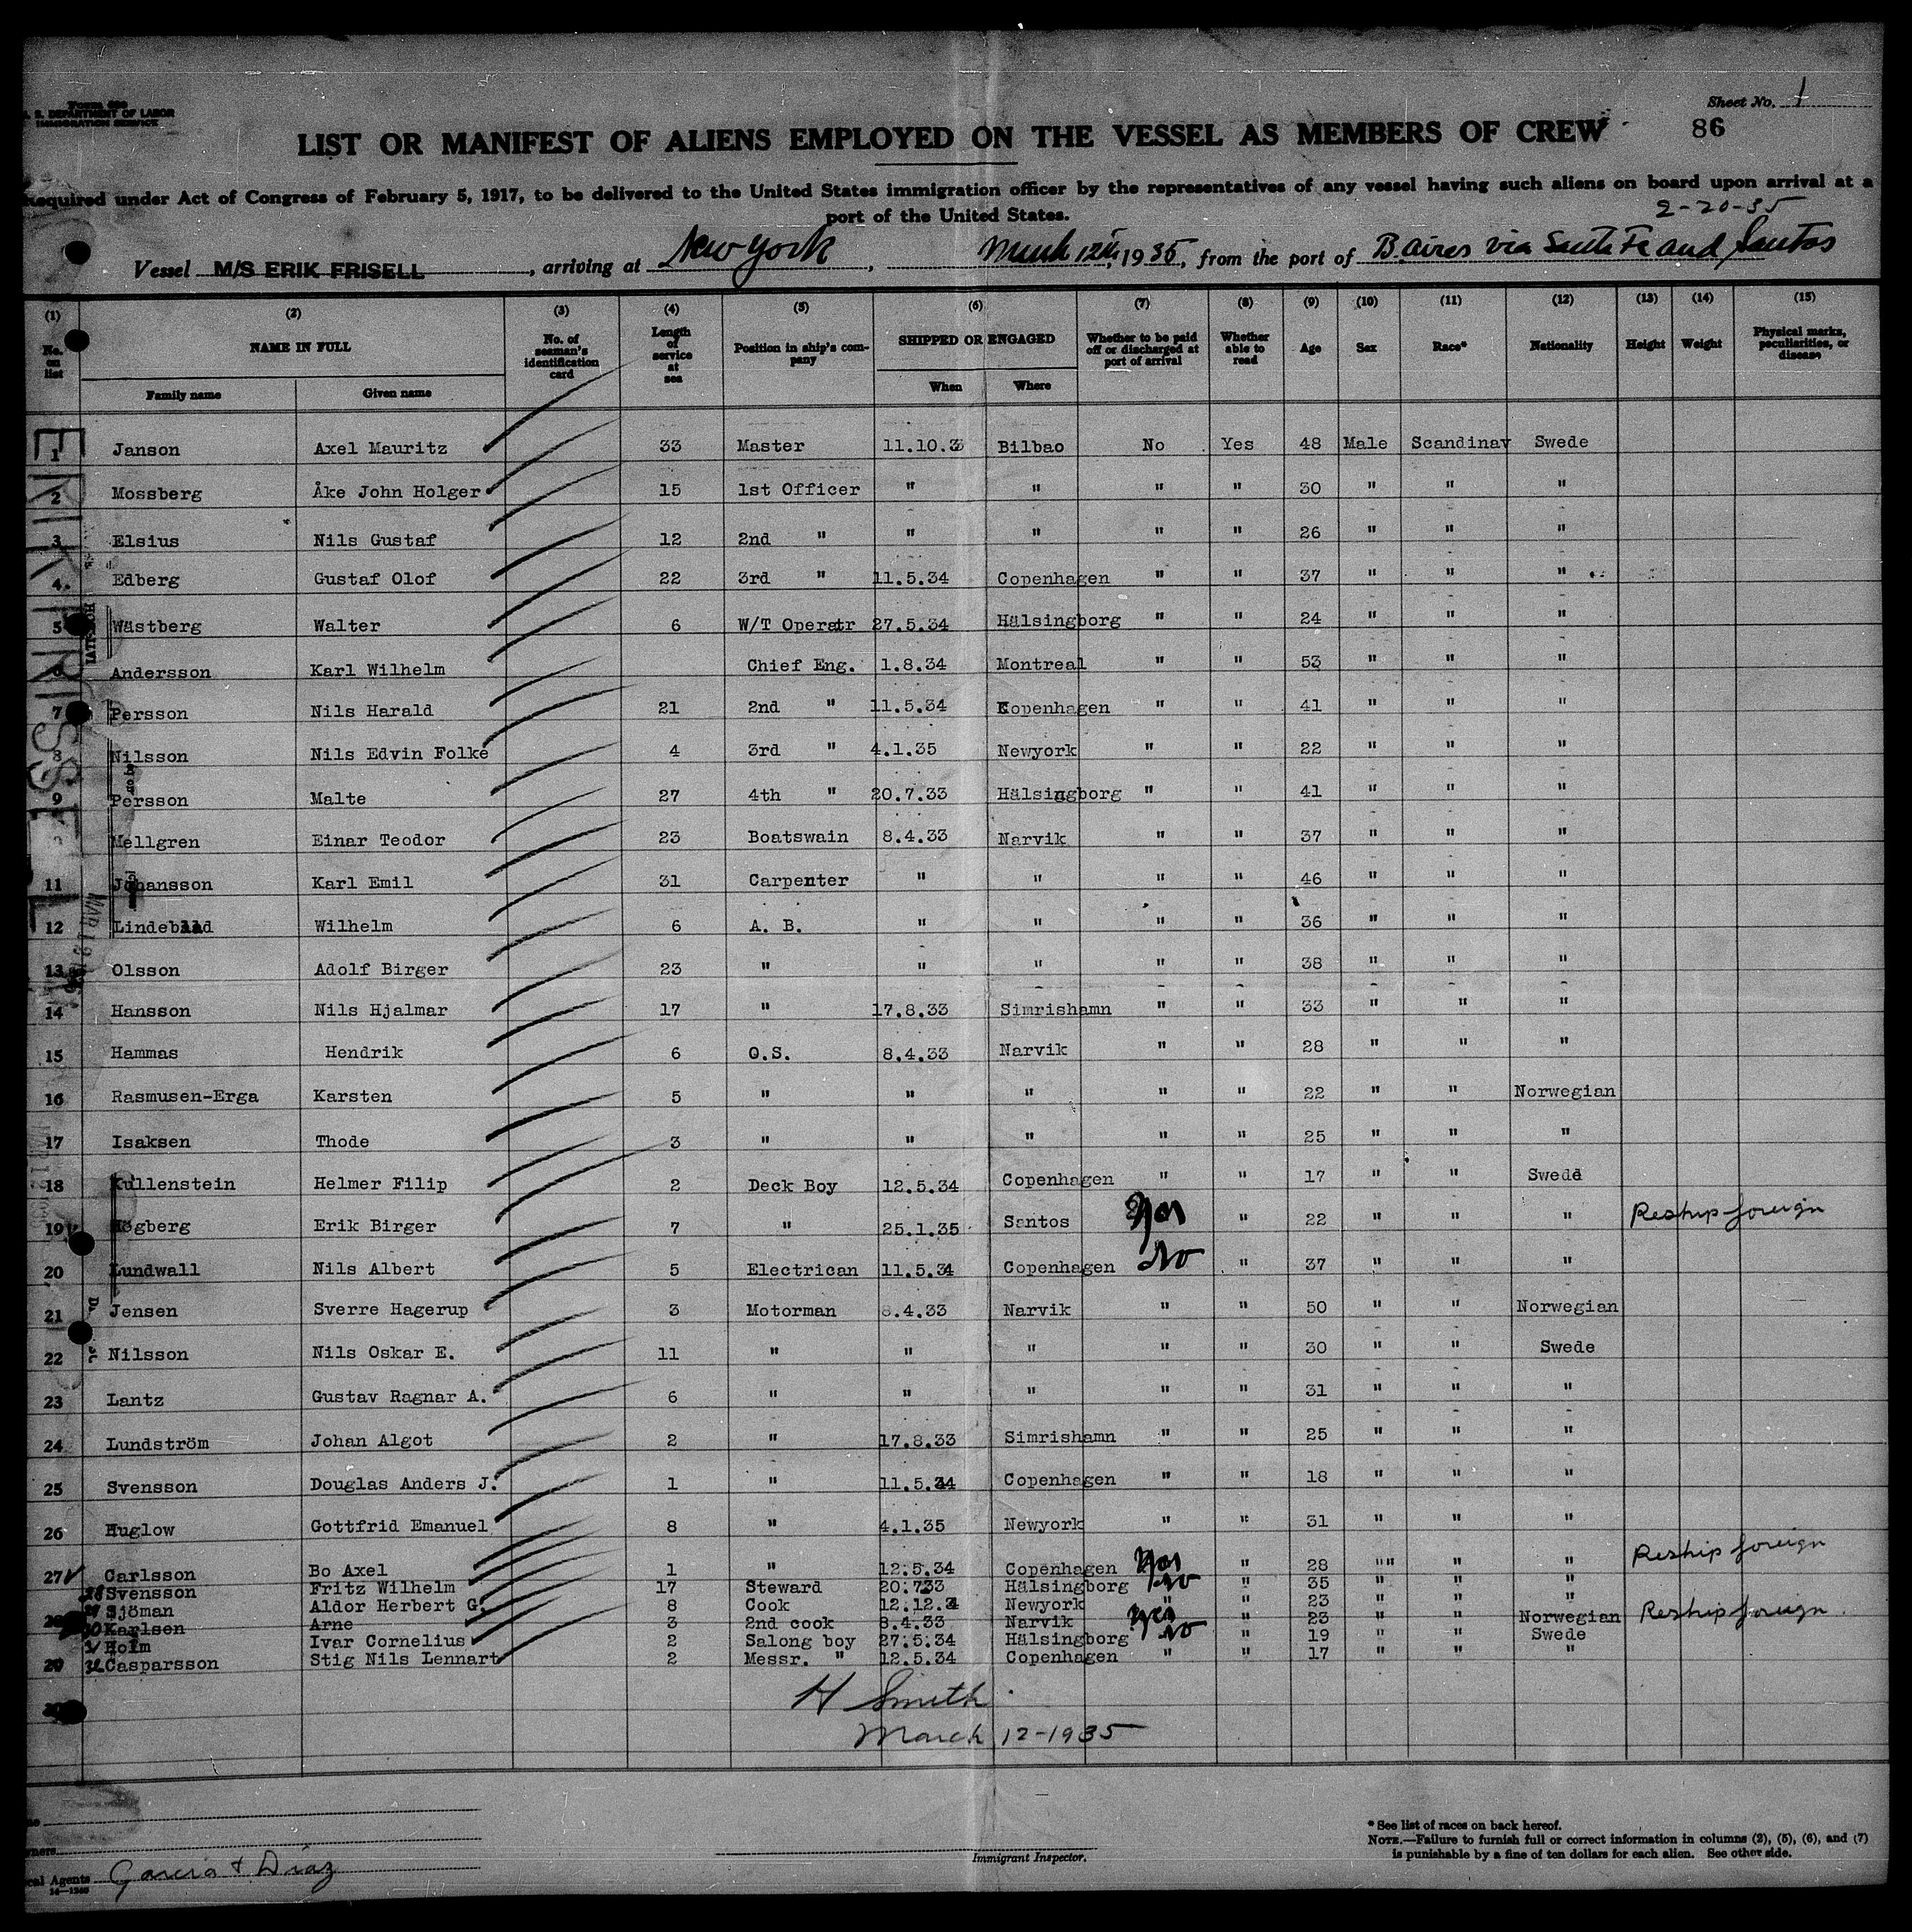 Form 680
U. S. DEPARTMENT OF LABOR
IMMIGRATION SERVICE
Sheet No. 1
86
LIST OR MANIFEST OF ALIENS EMPLOYED ON THE VESSEL AS MEMBERS OF CREW
Required under Act of Congress of February 5, 1917, to be delivered to the United States immigration officer by the representatives of any vessel having such aliens on board upon arrival at a
port of the United States.
2-20-35
Vessel M/S ERIK FRISELL, arriving at New York, March 12th, 1935, from the port of B. aires via Santa Fe and Santos
(1) (2) (3) (4) (5) (6) (7) (8) (9) (10) (11) (12) (13) (14) (15)
No. on list NAME IN FULL No. of seaman's identification card Length of service at sea Position in ship's company SHIPPED OR ENGAGED Whether to be paid off or discharged at port of arrival Whether able to read Age Sex Race* Nationality Height Weight Physical marks, peculiarities, or disease
Family name Given name When Where
1 Janson Axel Mauritz 33 Master 11.10.33 Bilbao No Yes 48 Male Scandinav Swede
2 Mossberg Åke John Holger 15 1st Officer " " " " 30 " " "
3 Elsius Nils Gustaf 12 2nd " " " " " 26 " " "
4 Edberg Gustaf Olof 22 3rd " 11.5.34 Copenhagen " " 37 " " "
5 Wästberg Walter 6 W/T Operatr 27.5.34 Hälsingborg " " 24 " " "
6 Andersson Karl Wilhelm Chief Eng. 1.8.34 Montreal " " 53 " " "
7 Persson Nils Harald 21 2nd " 11.5.34 Copenhagen " " 41 " " "
8 Nilsson Nils Edvin Folke 4 3rd " 4.1.35 Newyork " " 22 " " "
9 Persson Malte 27 4th " 20.7.33 Hälsingborg " " 41 " " "
Mellgren Einar Teodor 23 Boatswain 8.4.33 Narvik " " 37 " " "
11 Johansson Karl Emil 31 Carpenter " " " " 46 " " "
12 Lindeblad Wilhelm 6 A. B. " " " " 36 " " "
13 Olsson Adolf Birger 23 " " " " " 38 " " "
14 Hansson Nils Hjalmar 17 " 17.8.33 Simrishamn " " 33 " " "
15 Hammas Hendrik 6 O.S. 8.4.33 Narvik " " 28 " " "
16 Rasmusen-Erga Karsten 5 " " " " " 22 " " Norwegian
17 Isaksen Thode 3 " " " " " 25 " " "
18 Kullenstein Helmer Filip 2 Deck Boy 12.5.34 Copenhagen " " 17 " " Swede
19 Högberg Erik Birger 7 " 25.1.35 Santos Yes " 22 " " " Reship foreign
20 Lundwall Nils Albert 5 Electrican 11.5.34 Copenhagen No " 37 " " "
21 Jensen Sverre Hagerup 3 Motorman 8.4.33 Narvik " " 50 " " Norwegian
22 Nilsson Nils Oskar E. 11 " " " " " 30 " " Swede
23 Lantz Gustav Ragnar A. 6 " " " " " 31 " " "
24 Lundström Johan Algot 2 " 17.8.33 Simrishamn " " 25 " " "
25 Svensson Douglas Anders J. 1 " 11.5.34 Copenhagen " " 18 " " "
26 Huglow Gottfrid Emanuel 8 " 4.1.35 Newyork " " 31 " " "
27 Carlsson Bo Axel 1 " 12.5.34 Copenhagen Yes " 28 "" " " Reship foreign
28 Svensson Fritz Wilhelm 17 Steward 20.733 Hälsingborg No " 35 " " "
29 Sjöman Aldor Herbert G. 8 Cook 12.12.34 Newyork " " 23 " " "
30 Karlsen Arne 3 2nd cook 8.4.33 Narvik Yes " 23 " " Norwegian Reship foreign
Holm Ivar Cornelius 2 Salong boy 27.5.34 Hälsingborg No " 19 " " Swede
29 32 Casparsson Stig Nils Lennart 2 Messr. " 12.5.34 Copenhagen " " 17 " " "
H Smith
March 12-1935
Garcia & Diaz
Immigrant Inspector.
* See list of races on back hereof.
NOTE.—Failure to furnish full or correct information in columns (2), (5), (6), and (7)
is punishable by a fine of ten dollars for each alien. See other side.